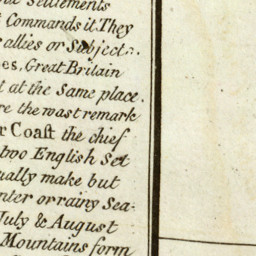 Settlements
Commands it. They
allies or Subjects.
es. Great Britain
t at the Same place.
re the most remark
r Coast the chief
two English Set
ually make but
nter or rainy Sea-
July & August
Mountains form